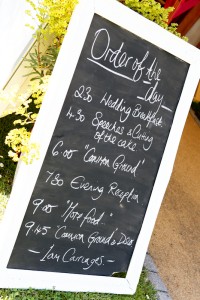 Order of the
day
2.30 Wedding Breakfast
4.30 Speeches & Cutting
of the cake
6.00 'Common Ground'
7.30 Evening Reception
9.00 'More food'
9.45 'Common Ground' & Disco
1am Carriages